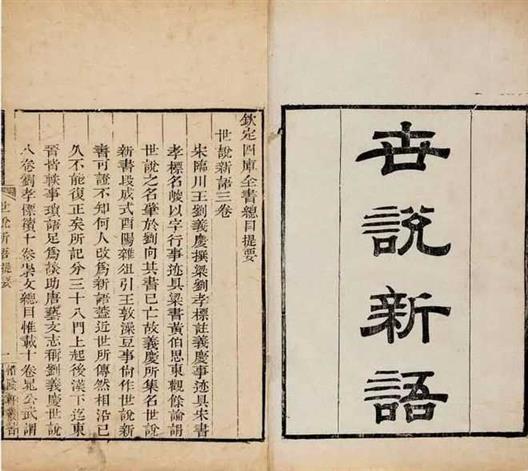 世說新語
欽定四庫全書總目提要
世說新語三卷
宋臨川王劉義慶撰梁劉孝標註義慶事迹具宋書
孝標名峻以字行事迹具梁書黃伯思東觀餘論謂
世說之名肇於劉向其書已亡故義慶所集名世說
新書段成式酉陽雜俎引王敦澡豆事尚作世說新
書可證不知何人改爲新語蓋近世所傳然相沿已
久不能復正矣所記分三十八門上起後漢下迄東
晉皆軼事瑣語足爲談助唐藝文志稱劉義慶世說
八卷劉孝標續十卷崇文總目惟載十卷晁公武謂
世說新語提要 一